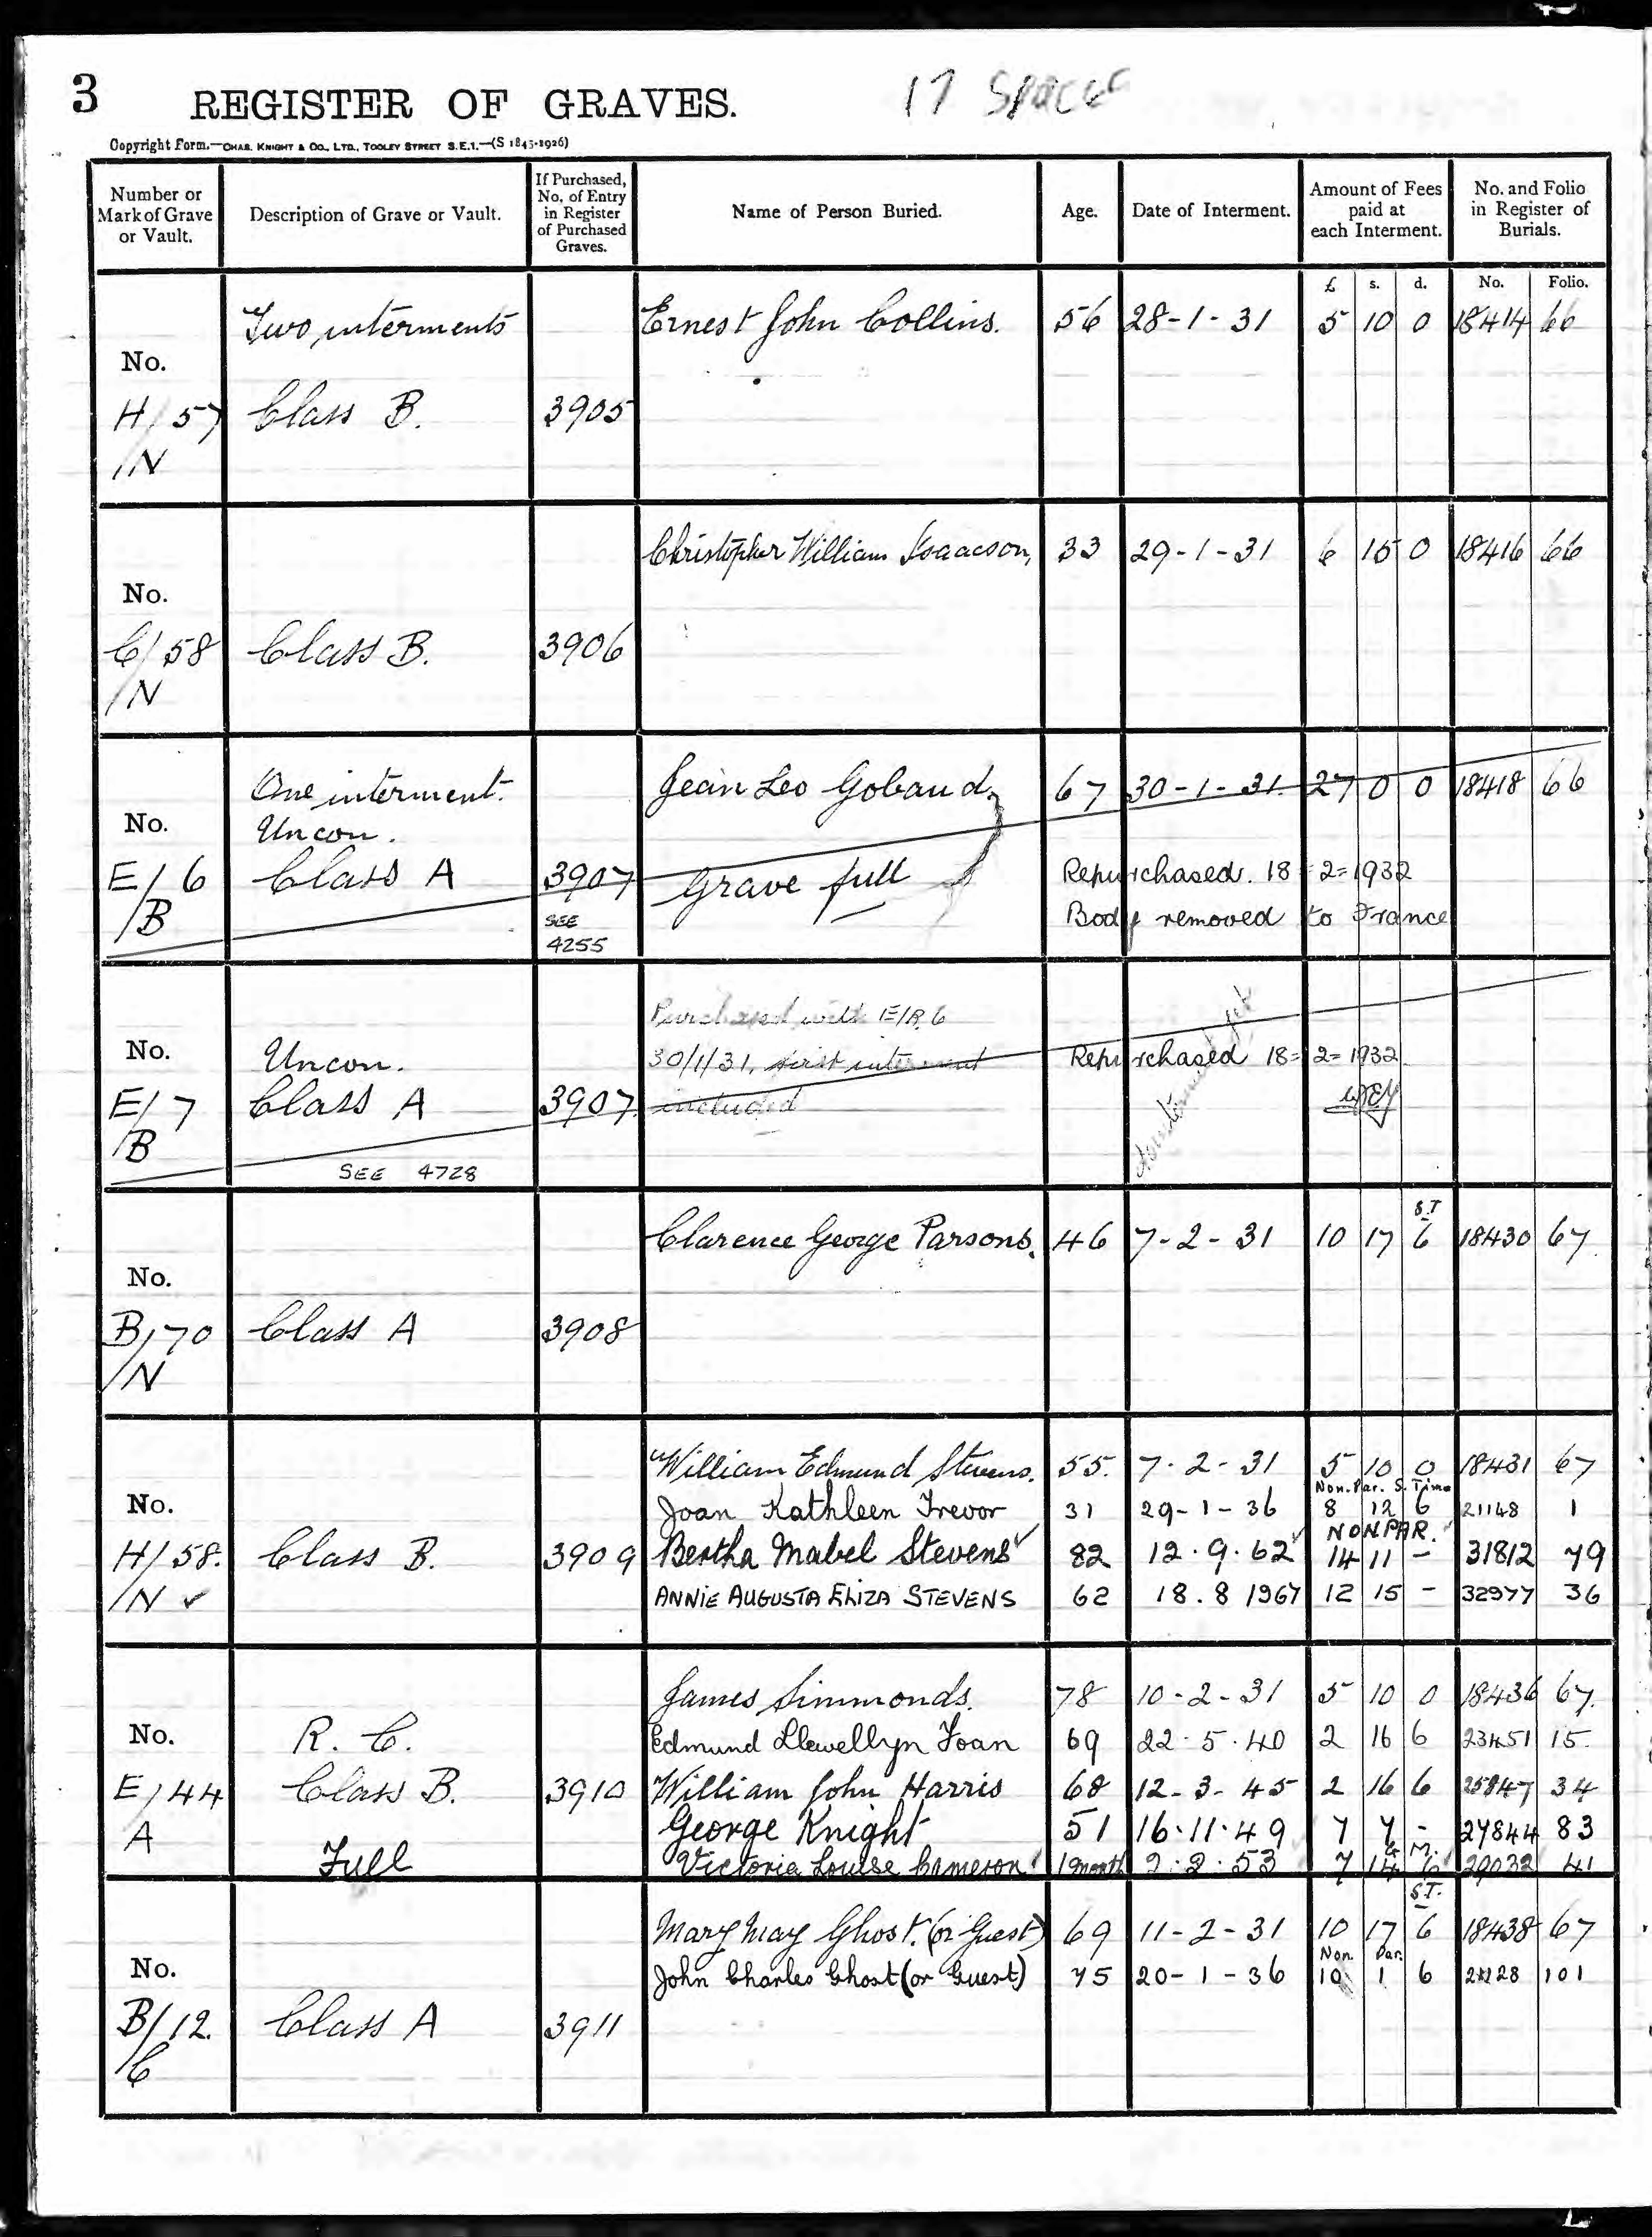 3 REGISTER OF GRAVES. 17 Spaces
Copyright Form.—CHAS. KNIGHT & CO., LTD., TOOLEY STREET S.E.1.—(S 1845-1926)
Number or Mark of Grave or Vault. Description of Grave or Vault. If Purchased, No. of Entry in Register of Purchased Graves. Name of Person Buried. Age. Date of Interment. Amount of Fees paid at each Interment. No. and Folio in Register of Burials.
£ s. d. No. Folio.
Two interments Ernest John Collins. 56 28-1-31 5 10 0 18414 66
No.
H/57 Class B. 3905
/N
Christopher William Isaacson, 33 29-1-31 6 15 0 18416 66
No.
C/58 Class B. 3906
/N
One interment. Jean Leo Gobaud 67 30-1-31 27 0 0 18418 66
No. Uncon.
E/6 Class A 3907 Grave full Repurchased. 18=2=1932
/B SEE 4255 Body removed to France
Purchased with E/B, 6
No. Uncon. 30/1/31, first interment Repurchased 18=2=1932
E/7 Class A 3907. included
/B
SEE 4728
S.T
Clarence George Parsons. 46 7-2-31 10 17 6 18430 67.
No.
B/70 Class A 3908
/N
William Edmund Stevens. 55. 7-2-31 5 10 0 18431 67
Non. Par. S. Time
No. Joan Kathleen Trevor 31 29-1-36 8 12 6 21148 1
NON PAR.
H/58. Class B. 3909 Bertha Mabel Stevens 82 12.9.62 14 11 – 31812 79
/N ✓ ANNIE AUGUSTA ELIZA STEVENS 62 18.8 1967 12 15 – 32977 36
James Simmonds. 78 10-2-31 5 10 0 18436 67.
No. R. C. Edmund Llewellyn Toan 69 22.5.40 2 16 6 23451 15.
E/44 Class B. 3910 William John Harris 68 12-3-45 2 16 6 25847 34
A George Knight 51 16.11.49 7 7 - 27844 83
Full Victoria Louise Cameron 1 month 2.2.53 7 14 6 29032 41
S.T.
Mary May Ghost. (or Guest) 69 11-2-31 10 17 6 18438 67
Non. Par.
No. John Charles Ghost (or Guest) 75 20-1-36 10 1 6 21128 101
B/12. Class A 3911
/C